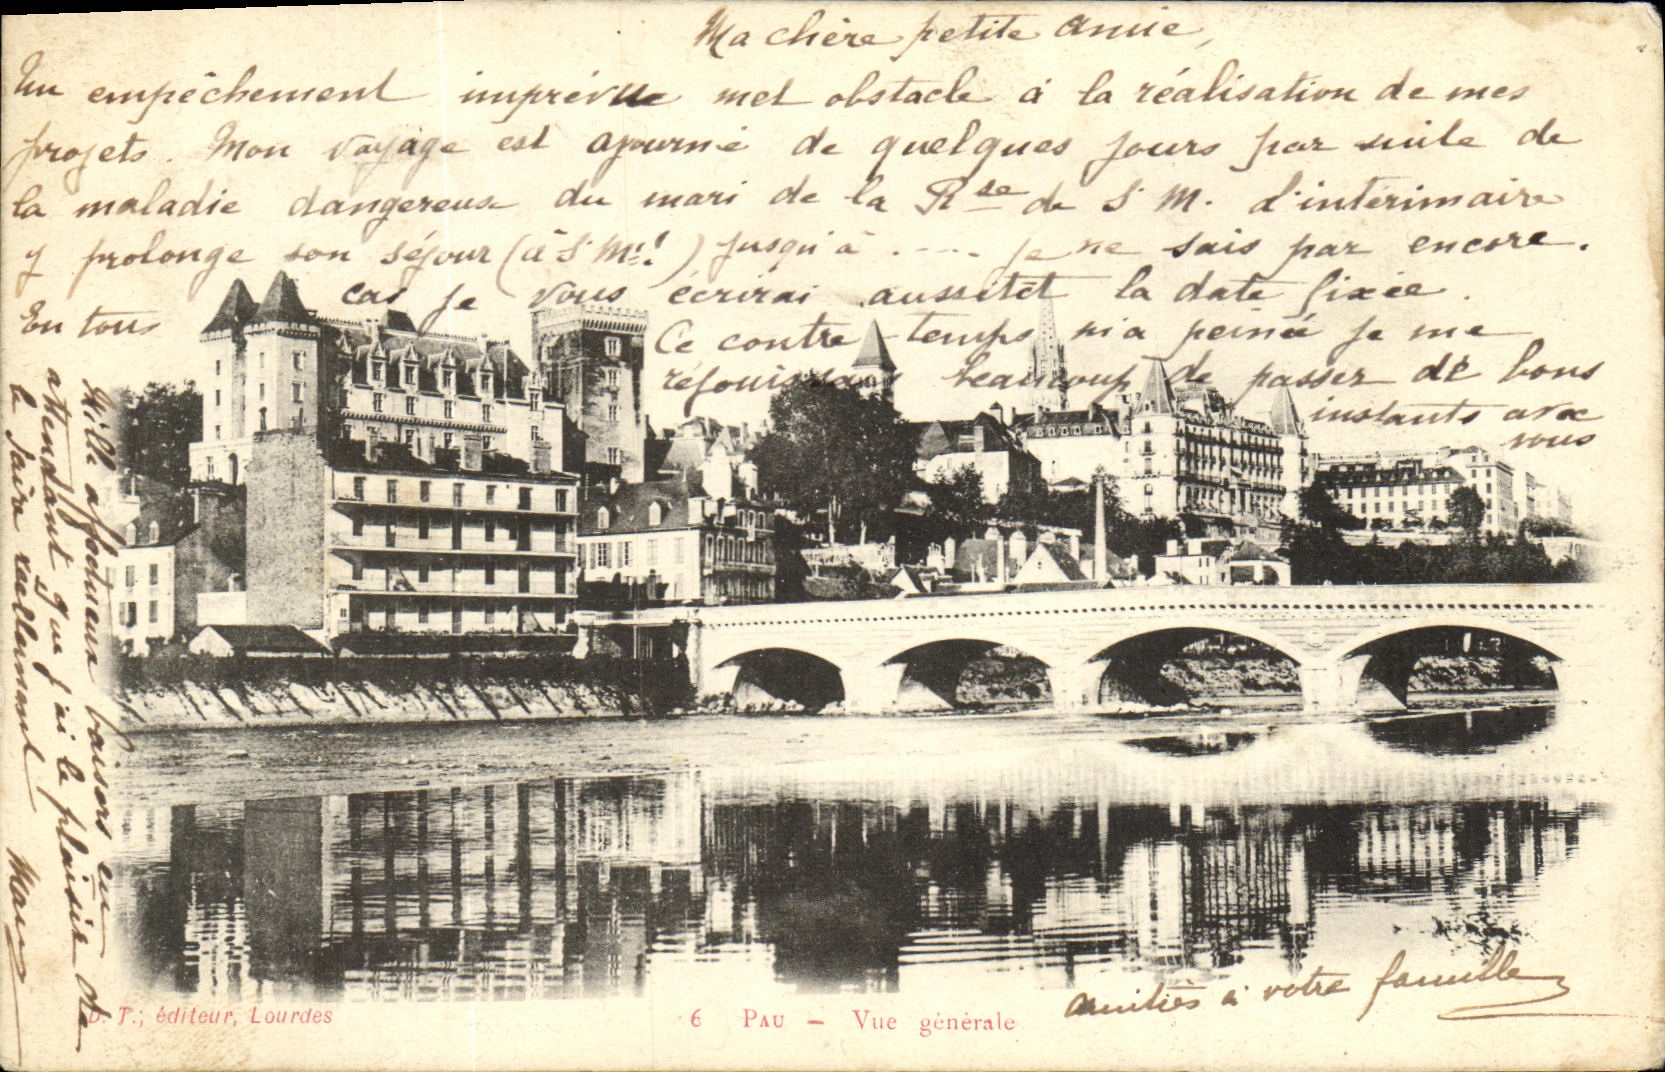 Ma chère petite amie,
Un empêchement imprévue met obstacle à la réalisation de mes
projets. Mon voyage est ajourné de quelques jours par suite de
la maladie dangereuse du mari de la Rse de S. M. L'intérimaire
y prolonge son séjour (à St M...!) jusqu'à ..... je ne sais pas encore.
En tous cas je vous écrirai aussitôt la date fixée.
Ce contre-temps m'a peinée je me
réjouissais beaucoup de passer de bons
instants avec
vous
Mille affectueux baisers en
attendant que j'ai le plaisir de
le faire réellement
Many
amitiés à votre famille
D. T.; éditeur, Lourdes
6 PAU — Vue générale